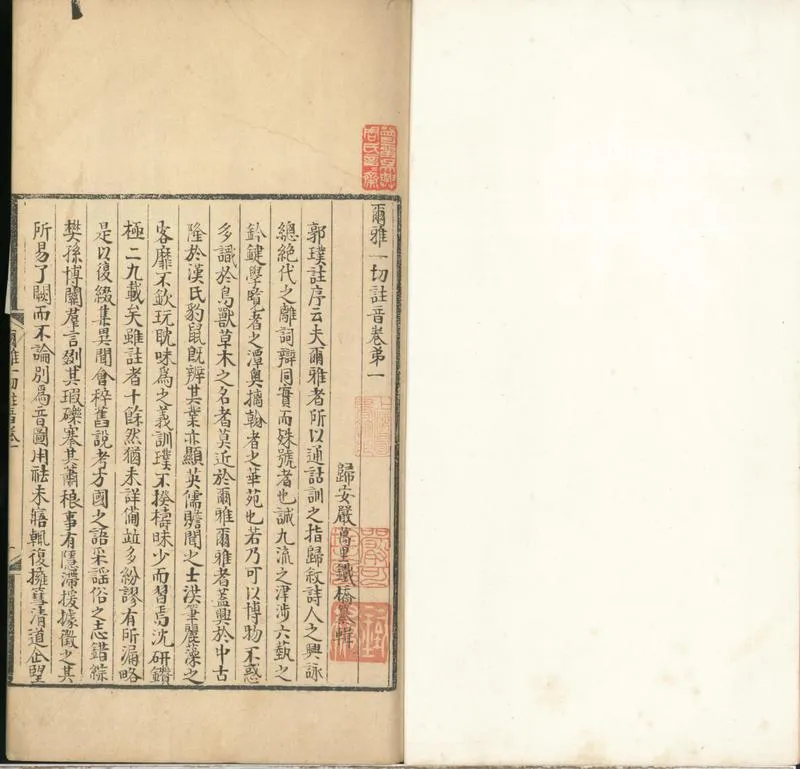 爾雅一切註音卷第一
歸安嚴萬里鐵橋纂輯
郭璞註序云夫爾雅者所以通詁訓之指歸敘詩人之興詠
總絕代之離詞辯同實而殊號者也誠九流之津涉六藝之
鈐鍵學覽者之潭奧摛翰者之華苑也若乃可以博物不惑
多識於鳥獸草木之名者莫近於爾雅爾雅者蓋興於中古
隆於漢氏豹鼠既辨其業亦顯英儒贍聞之士洪筆麗藻之
客靡不欽玩耽味為之義訓璞不揆檮昧少而習焉沈研鑽
極二九載矣雖註者十餘然猶未詳備竝多紛謬有所漏略
是以復綴集異聞會稡舊說考方國之語采謠俗之志錯綜
樊孫博關羣言剟其瑕礫搴其蕭稂事有隱滯援據徵之其
所易了闕而不論別為音圖用祛未寤輒復擁篲清道企望
爾雅一切註音卷一